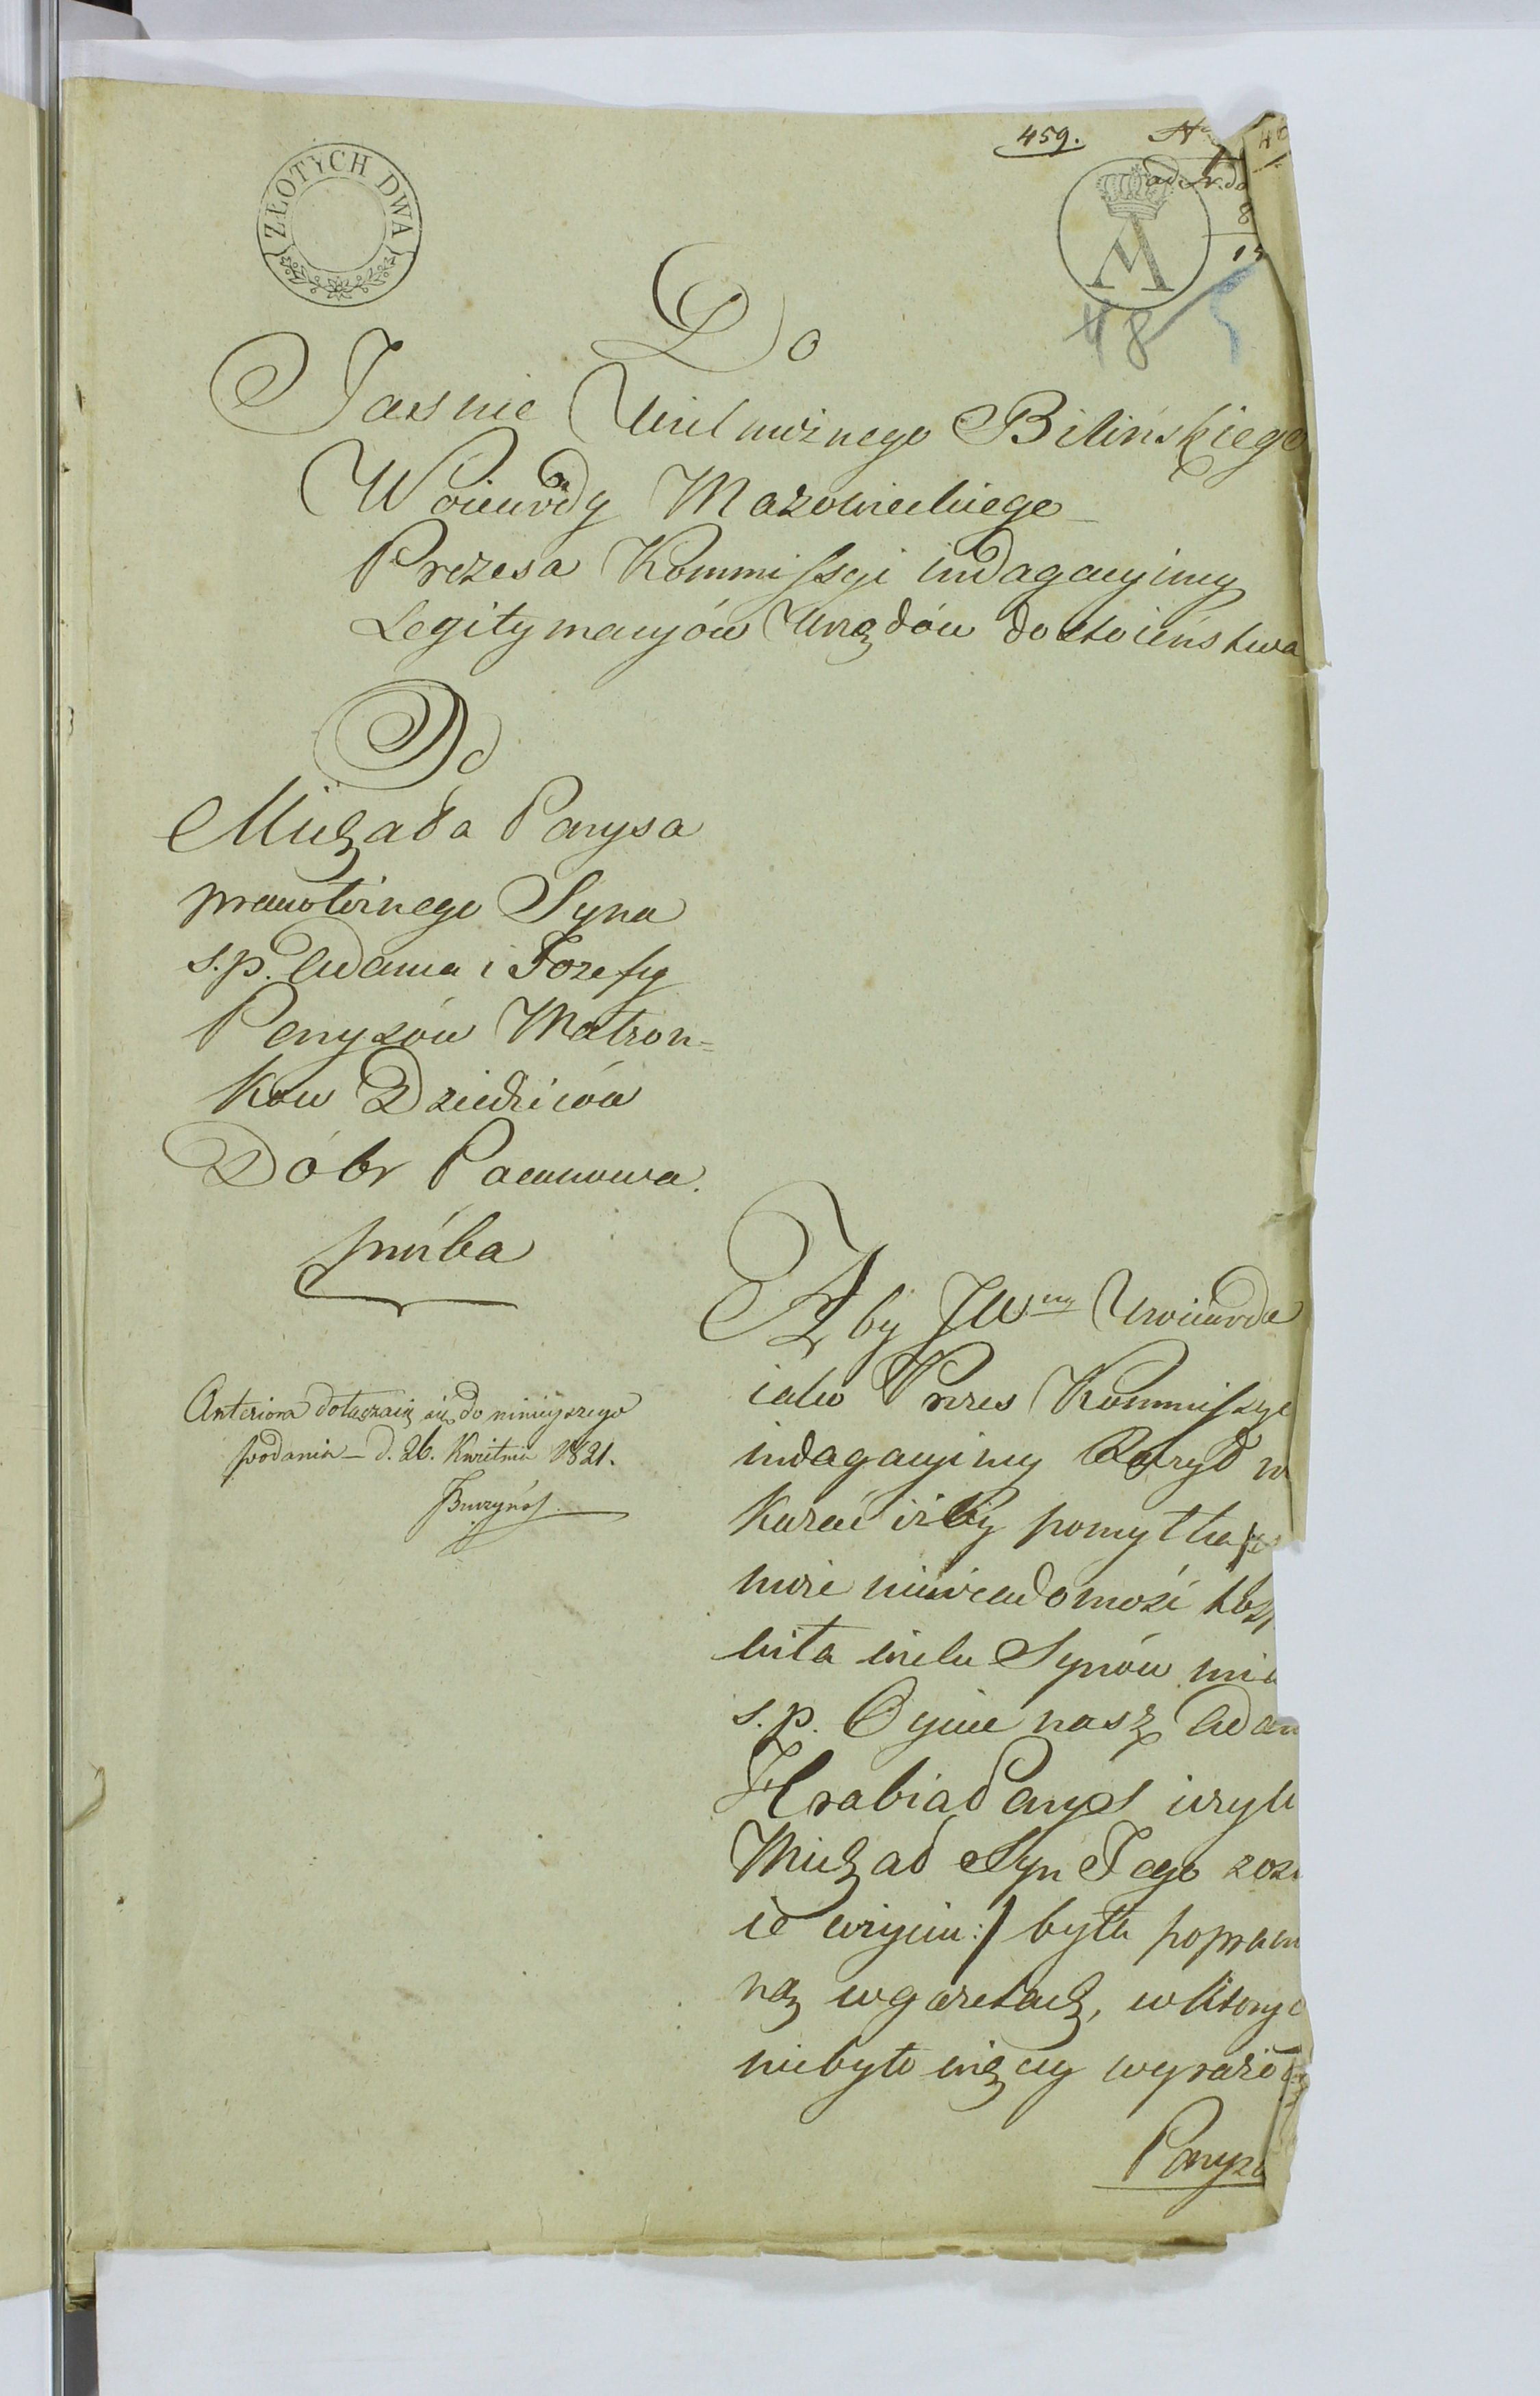 459.
ZŁOTYCH DWA
A
48
Do
Jasnie Wielmożnego Bilińskiego
Woiewody Mazowieckiego
Prezesa Kommissyi indagacyiney
Legitymacyów Urzędów dostoieństwa
Od
Michała Parysa
prawotnego Syna
s.p. Adama i Jozefy
Parysów Matron=
ków Dziedziców
Dóbr Pacanowa.
proźba
Anteriora dołączaią się do ninieyszego
podania — d. 26. Kwietnia 1821.
Aby JW Woiewoda
iako Prezes Kommissyi
indagacyiney Raczył w
kazać iżby pomyłka
niewiadomość
wielu Synów mia
s.p. Oyciec nasz Adam
Hrabia Parys
Michał Syn Jego
ie życiu:/ była popraw
ną w gazetach, wktoryc
niebyło więcy wyraże
Parysa